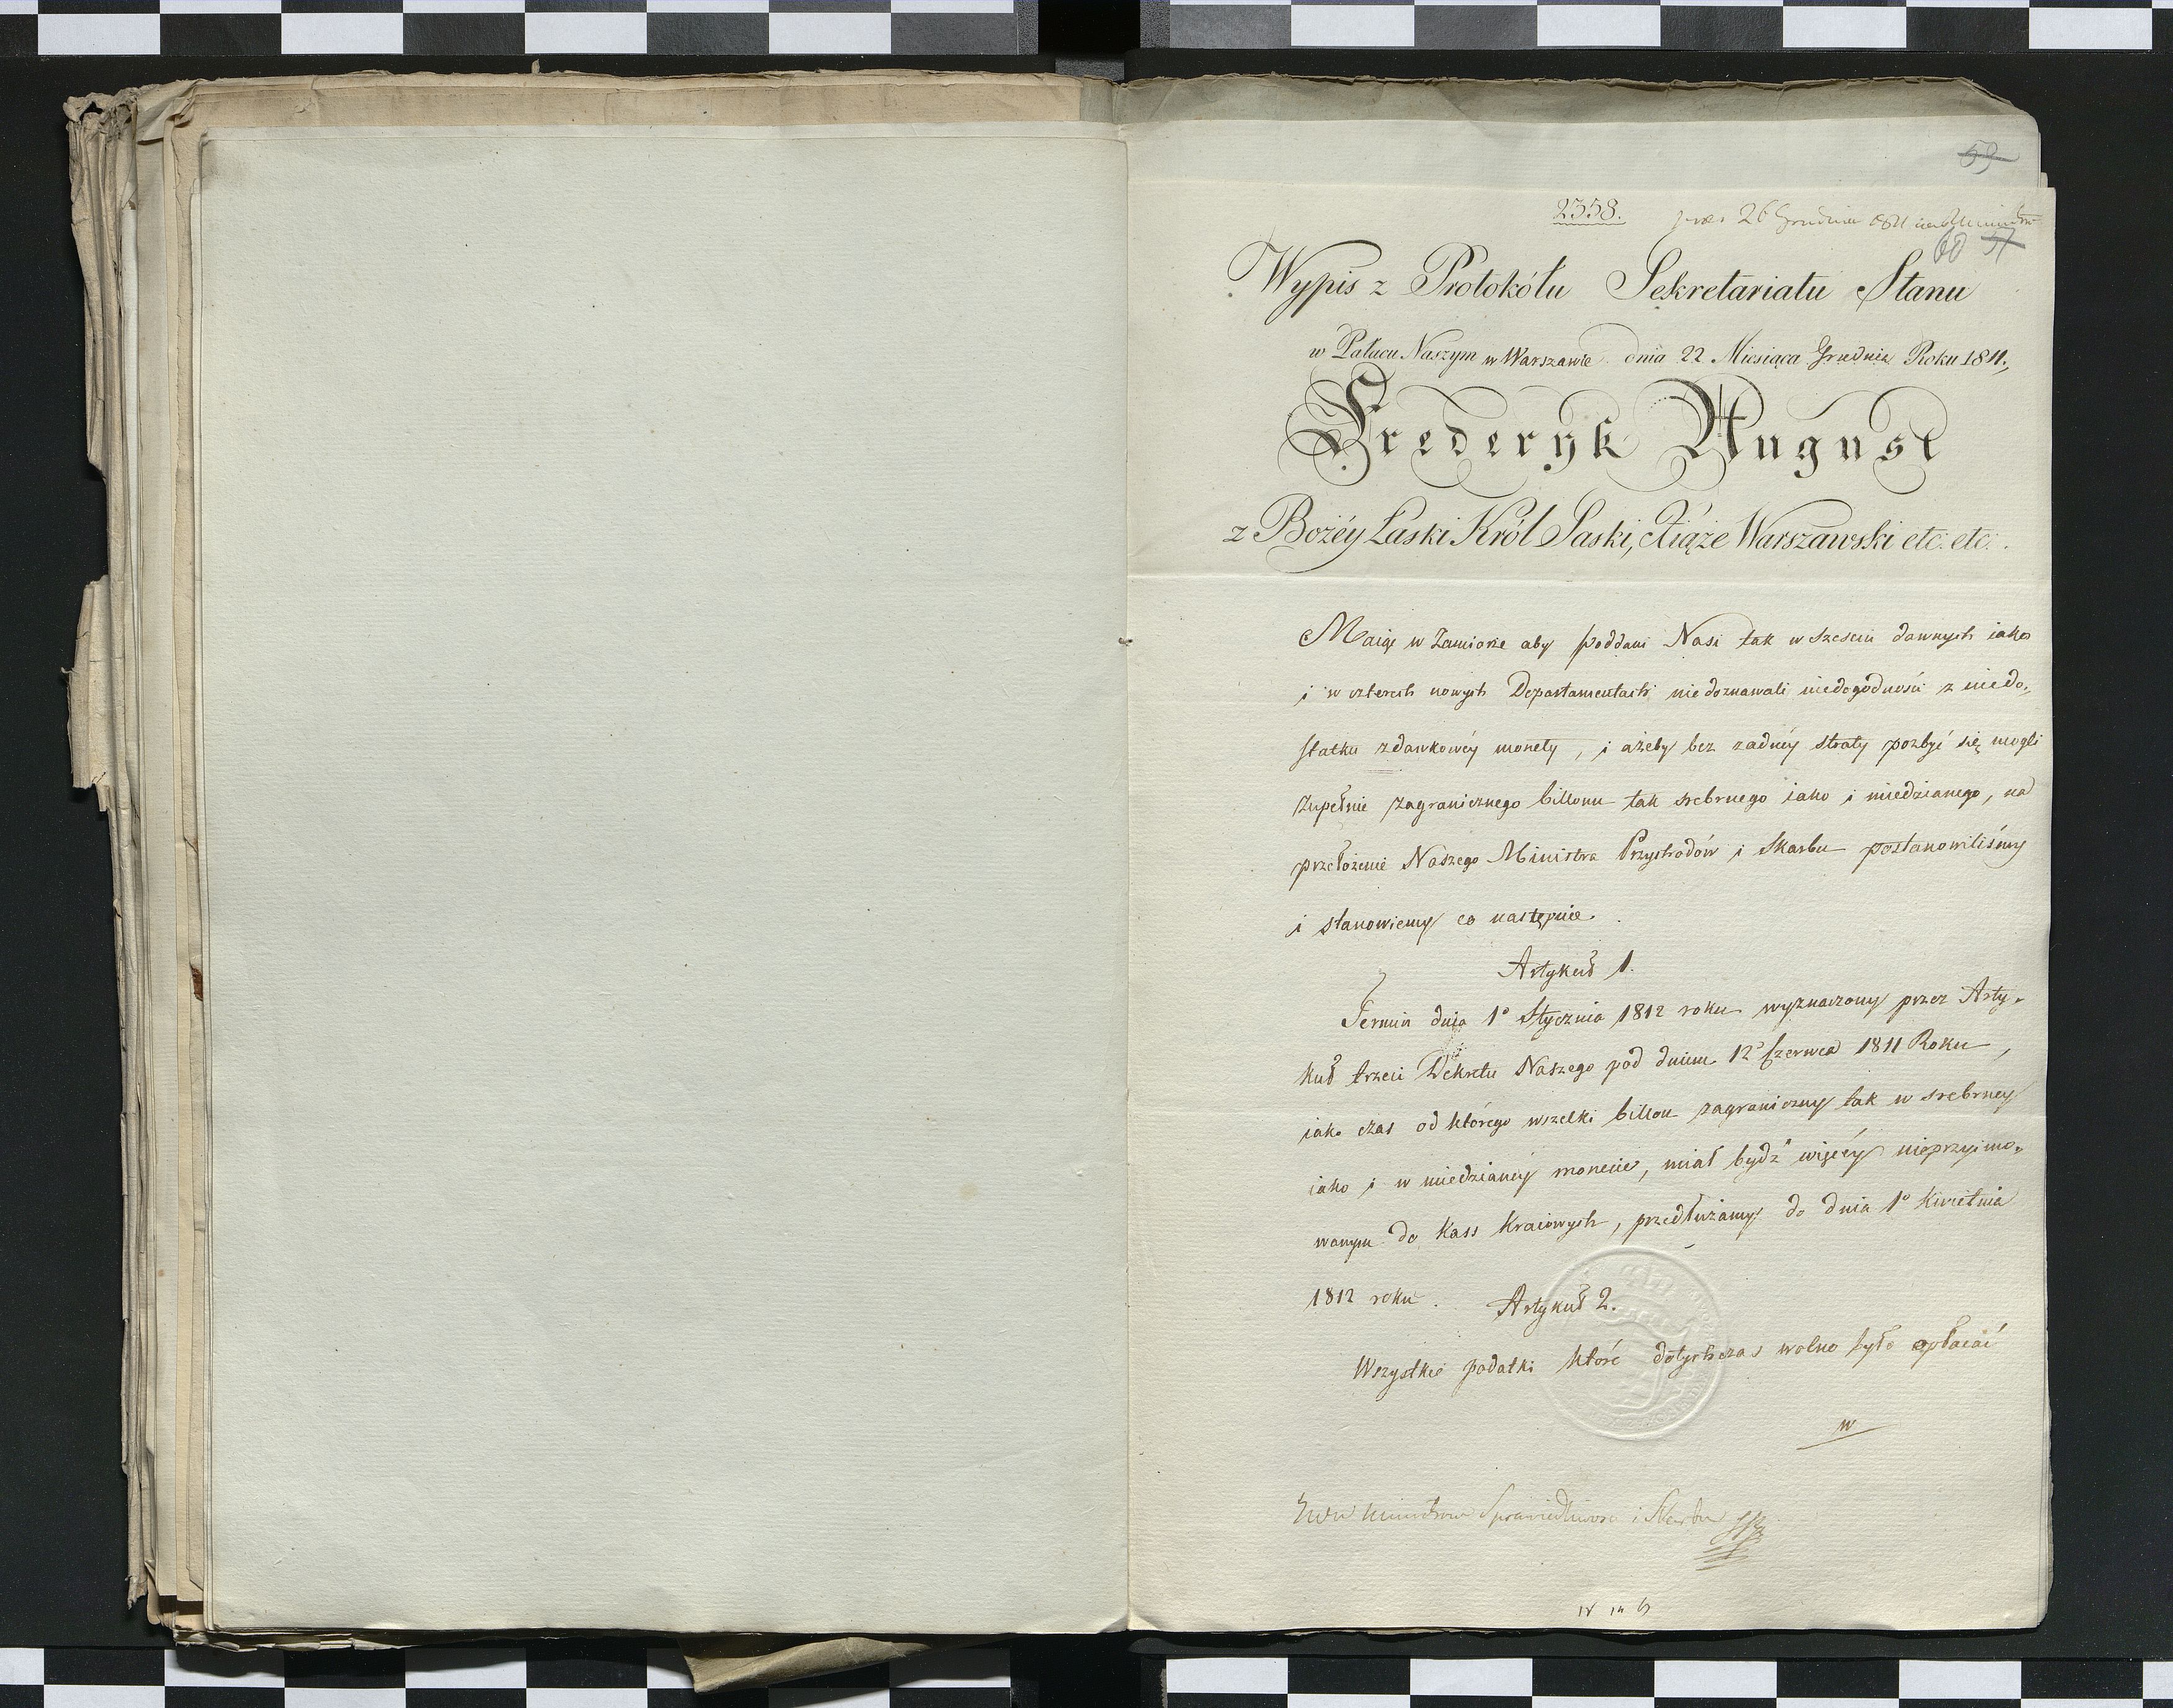 59
2358. 26 Grudnia 1811
60 57
Wypis z Protokółu Sekretariatu Stanu
w Pałacu Naszym w Warszawie dnia 22 Miesiąca Grudnia Roku 1811.
Fryderyk August
z Bożéy Łaski Król Saski, Xiąże Warszawski etc. etc.
Maiąc w Zamiarze aby poddani Nasi tak w sześciu dawnych iako
i w czterech nowych Departamentach nie doznawali niedogodności z niedo-
statku zdawkowéy monety, i ażeby bez żadnéy straty pozbyć się mogli
zupełnie zagranicznego billonu tak srebrnego iako i miedzianego, na
przełożenie Naszego Ministra Przychodów i Skarbu postanowiliśmy
i stanowiemy co następuie.
Artykuł 1.
Termin dnia 1º Stycznia 1812 roku wyznaczony przez Arty-
kuł trzeci Dekretu Naszego pod dniem 12º Czerwca 1811 Roku,
iako czas od którego wszelki billon zagraniczny tak w srebrney
iako i w miedzianéy monecie, miał bydź więcéy nieprzyimo-
wanym do Kass Kraiowych, przedłużamy do dnia 1º Kwietnia
1812 roku.
Artykuł 2.
Wszystkie podatki które dotychczas wolno było opłacać
w
Ministrowi Sprawiedliwości i Skarbu